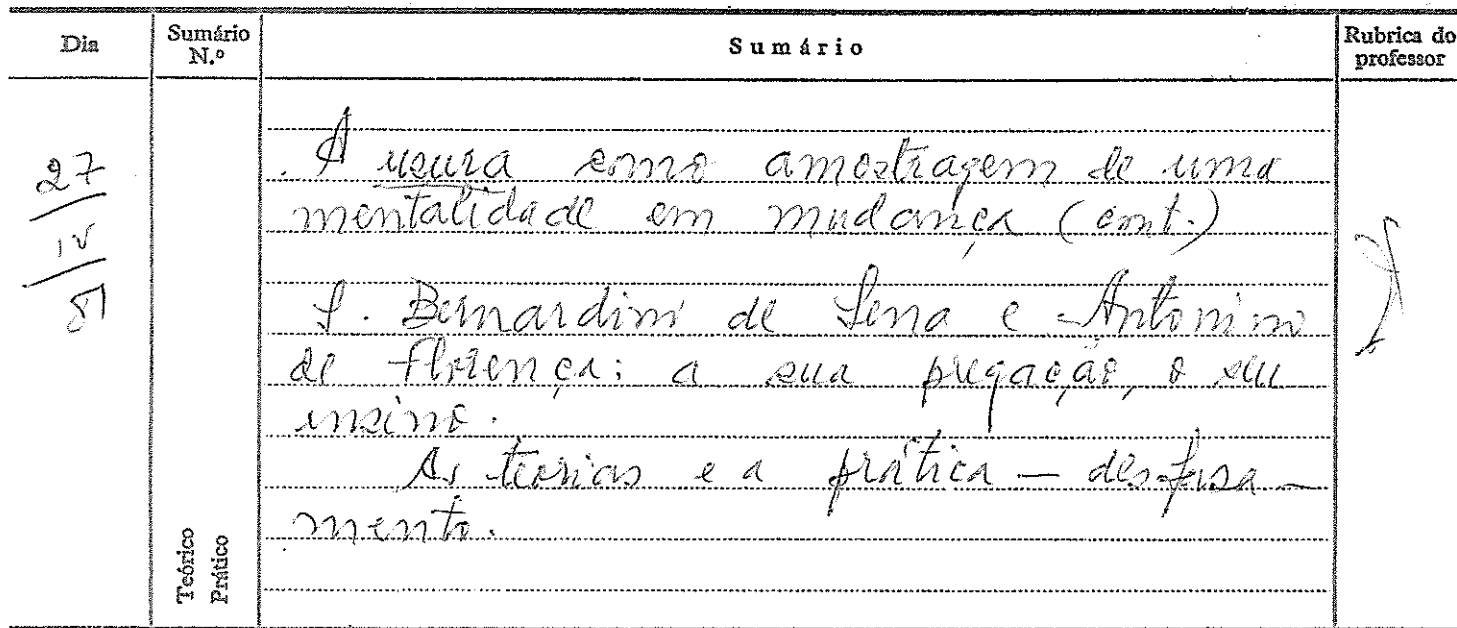 Dia
Sumário N.º
Sumário
Rubrica do professor
27
IV
81
. A usura como amostragem de uma
mentalidade em mudança (cont.)
S. Bernardino de Sena e Antonino
de Florença: a sua pregação, o seu
ensino.
As teorias e a prática — desfasa-
mento.
Teórico
Prático